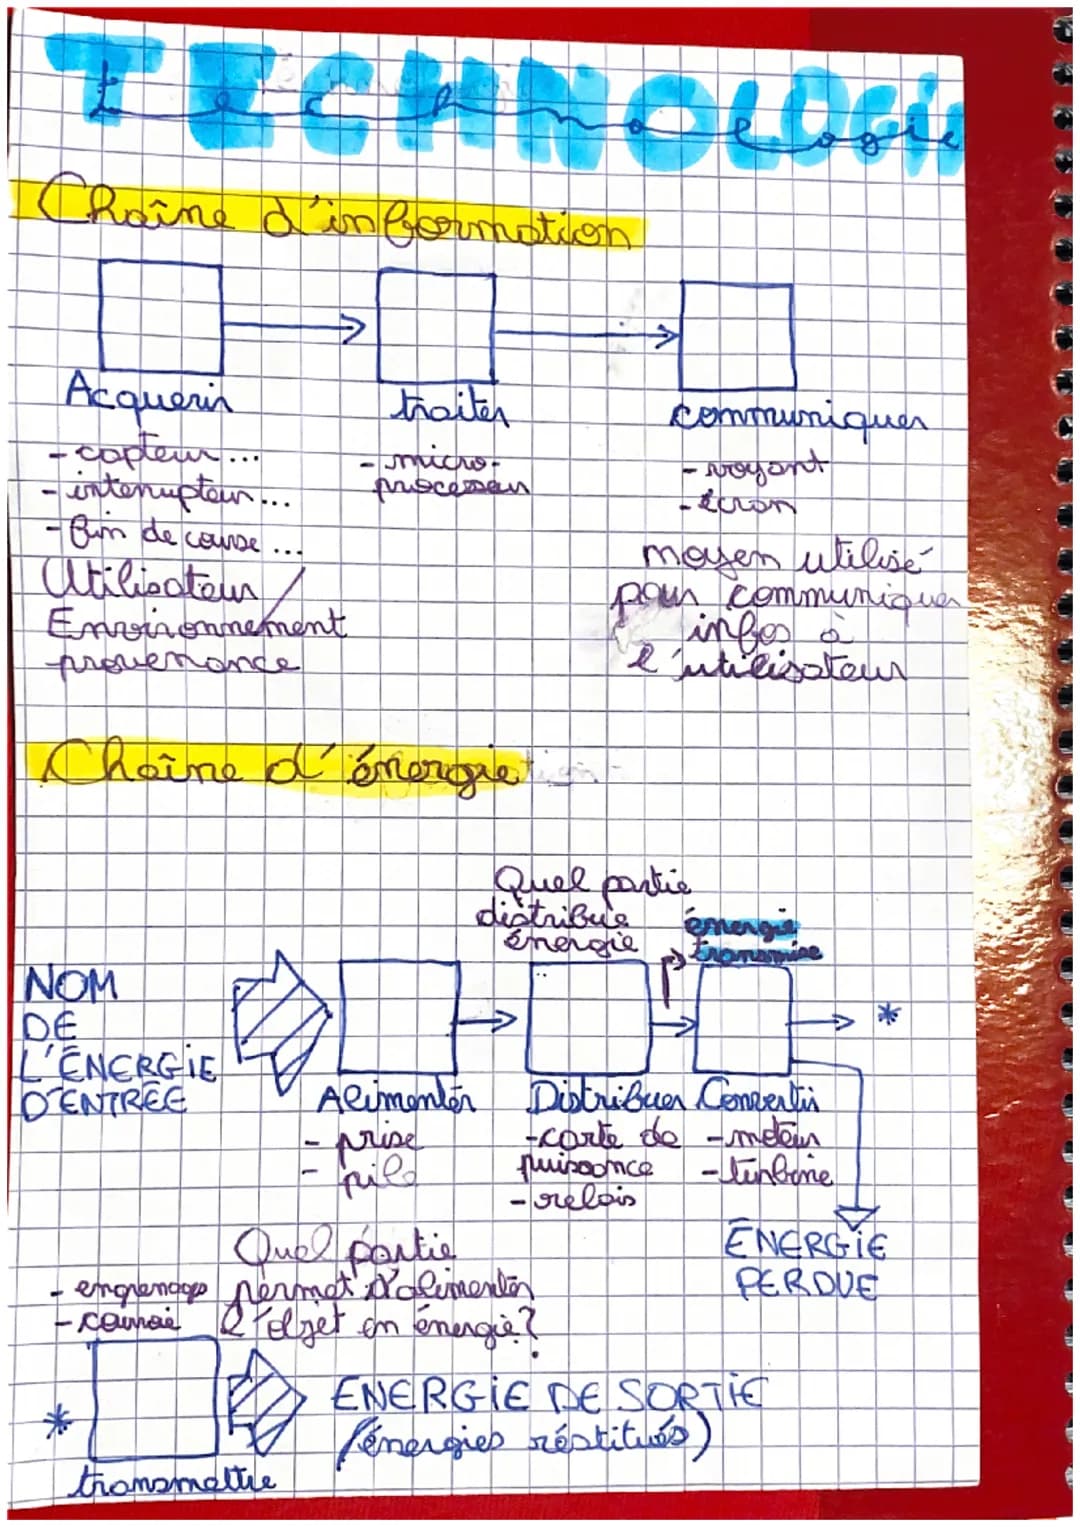 TECHNOLOGiE
technologie
Chaîne d'information
Acquerir traiter communiquer
- capteur...
- interupteur...
- fin de course...
Utilisateur /
Environnement
provenance
- micro-
processeur
- voyant
- écran
moyen utilisé
pour communiquer
infos à
l'utilisateur
Chaîne d'énergie
Quel partie
distribue
énergie
énergie
transmise
NOM
DE
L'ÉNERGiE
D'ENTRÉE
*
Alimenter Distribuer Convertir
- prise
- pile
- carte de
puissance
- relais
- moteur
- turbine
ÉNERGiE
PERDUE
Quel partie
permet d'alimenter
l'objet en énergie?
- engrenages
- courroie
*
ENERGiE DE SORTiE
(énergies réstitués)
transmettre